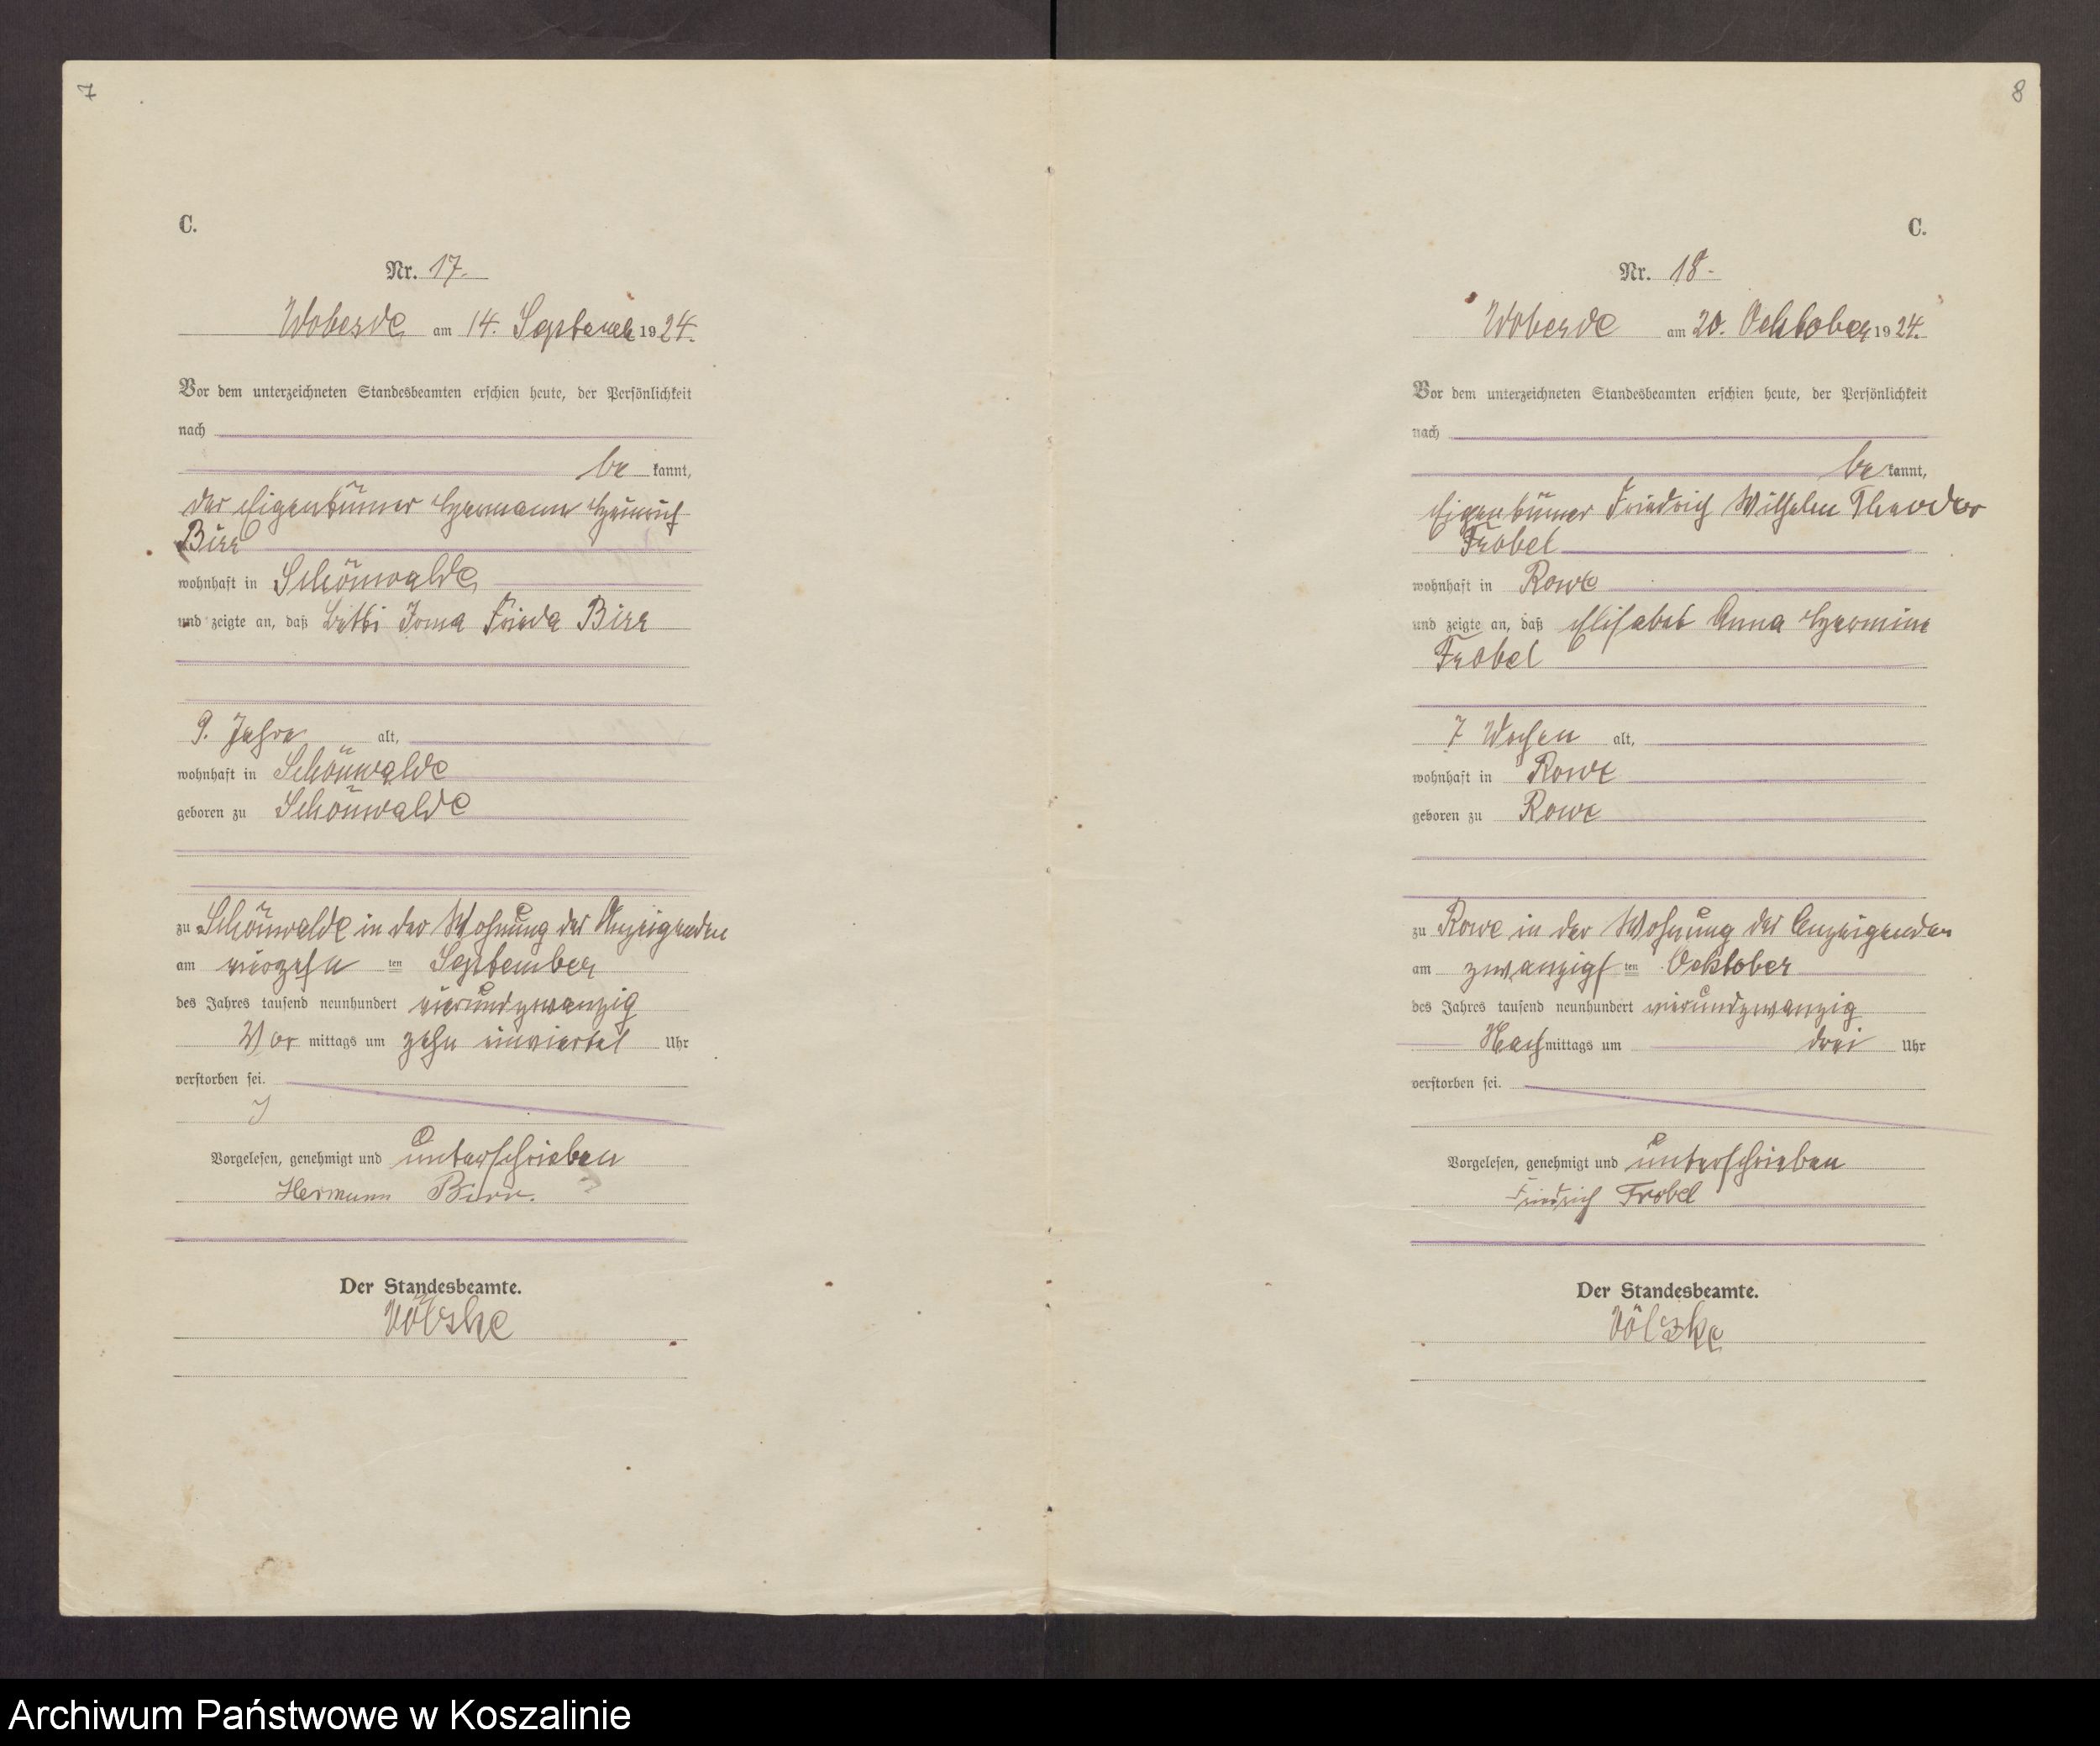 7
C.
Nr. 17.
Wobesde am 14. September 1924.
Vor dem unterzeichneten Standesbeamten erschien heute, der Persönlichkeit
nach
be kannt,
der Eigentümer Hermann Heinrich
Birr
wohnhaft in Schönwalde
und zeigte an, daß Irma Frieda Birr
9. Jahre alt,
wohnhaft in Schönwalde
geboren zu Schönwalde
zu Schönwalde in der Wohnung des Anzeigenden
am vierzehn ten September
des Jahres tausend neunhundert vierundzwanzig
Vor mittags um zehn einviertel Uhr
verstorben sei.
Vorgelesen, genehmigt und unterschrieben
Hermann Birr.
Der Standesbeamte.
Völzke
8
C.
Nr. 18.
Wobesde am 20. Ocktober 1924.
Vor dem unterzeichneten Standesbeamten erschien heute, der Persönlichkeit
nach
be kannt,
Eigentümer Friedrich Wilhelm Theodor
Frobel
wohnhaft in Rowe
und zeigte an, daß Elisabet Anna Hermine
Frobel
7 Wochen alt,
wohnhaft in Rowe
geboren zu Rowe
zu Rowe in der Wohnung des Anzeigenden
am zwanzigs ten Ocktober
des Jahres tausend neunhundert vierundzwanzig
Nach mittags um drei Uhr
verstorben sei.
Vorgelesen, genehmigt und unterschrieben
Friedrich Frobel
Der Standesbeamte.
Völzke
Archiwum Państwowe w Koszalinie